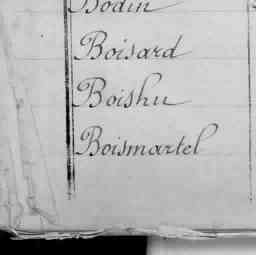 Bodin
Boisard
Boishu
Boismartel